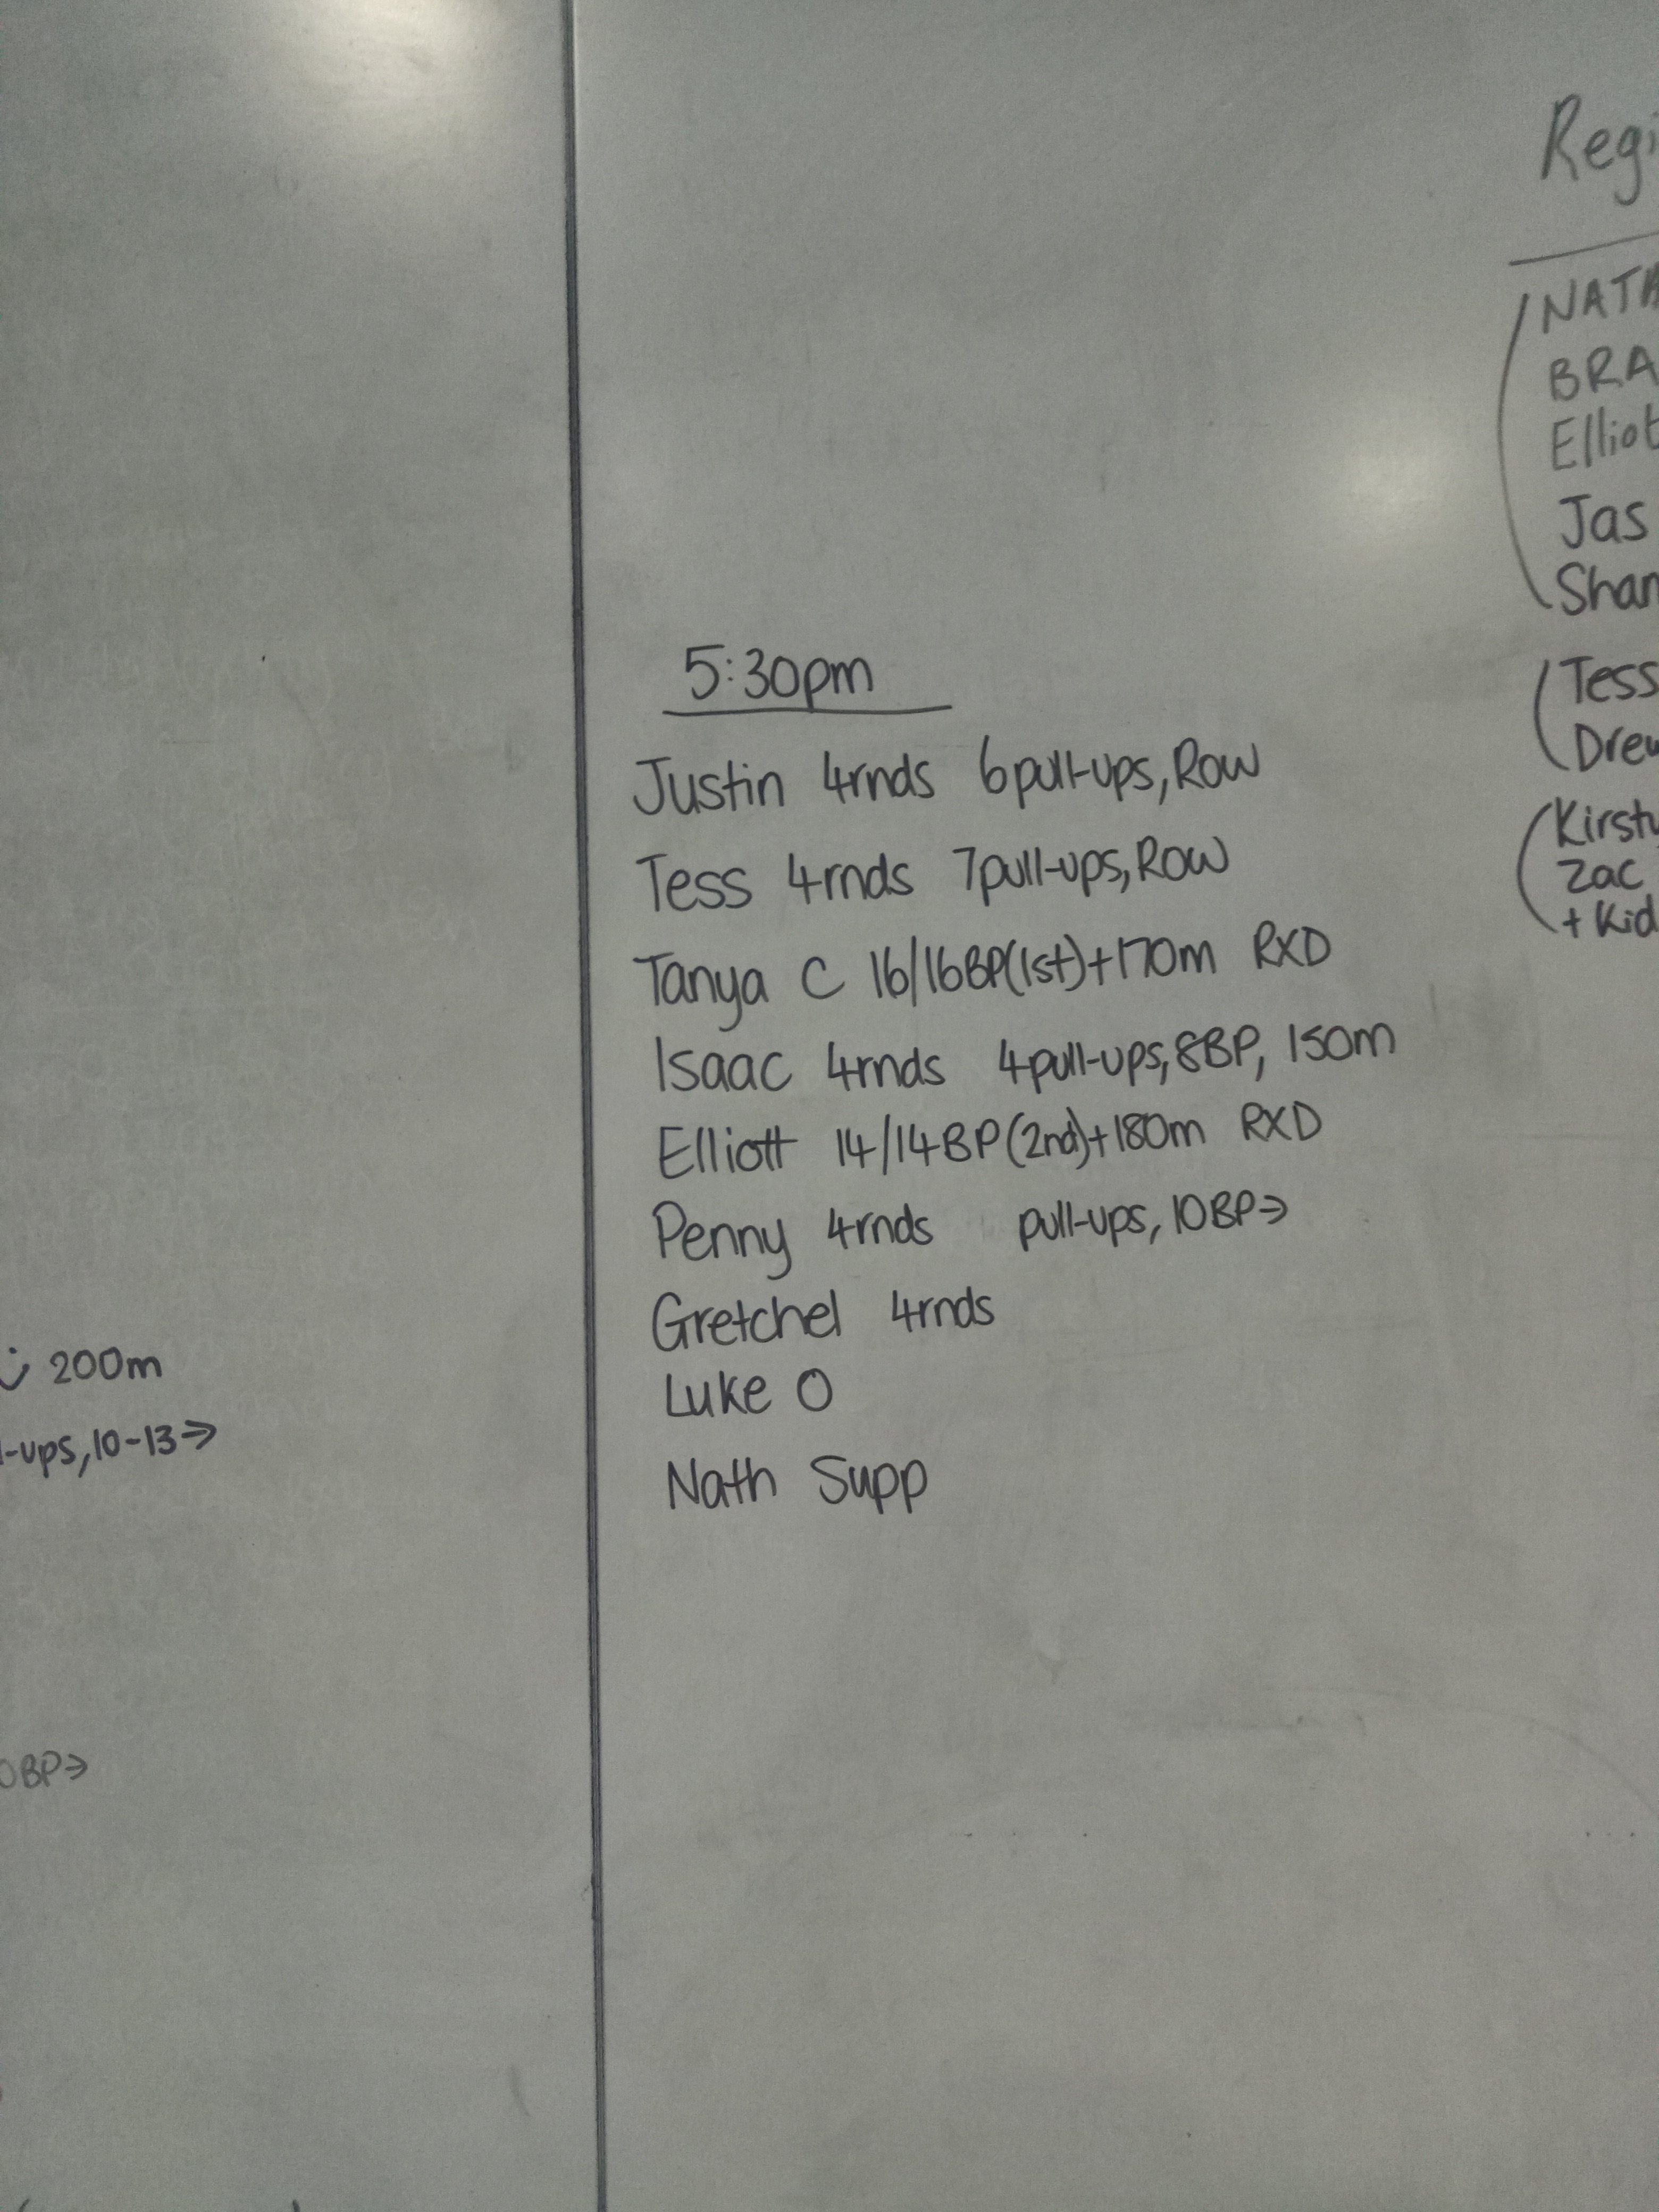 200m
-ups, 10-13→
0BP→
5:30pm
Justin 4rnds 6pull-ups, Row
Tess 4rnds 7pull-ups, Row
Tanya C 16/16BP(1st)+170m RXD
Isaac 4rnds 4pull-ups, 8BP, 150m
Elliott 14/14BP(2nd)+180m RXD
Penny 4rnds pull-ups, 10BP→
Gretchel 4rnds
Luke O
Nath Supp
Regi
NATH
BRA
Elliot
Jas
Shan
Tess
Drew
Kirsty
Zac
+ Kid